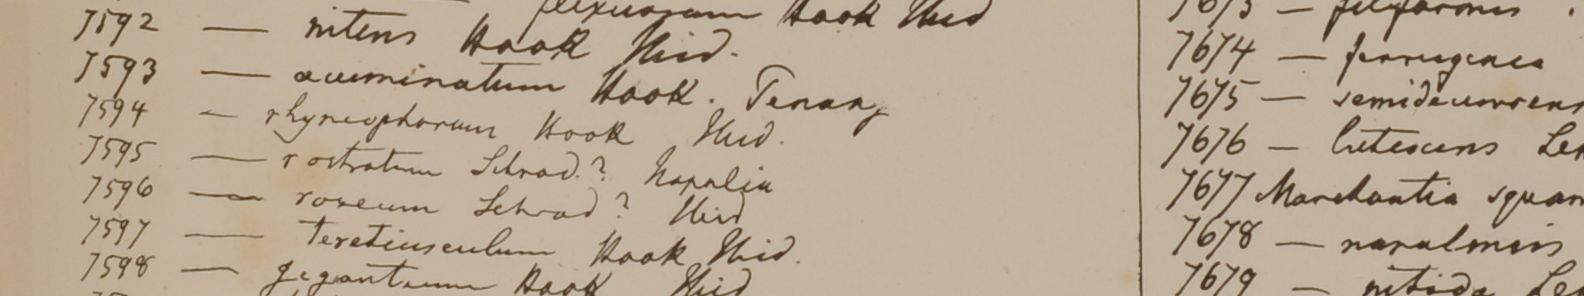 flexuosum Hook Ibid
7592 — nitens Hook Ibid.
7593 — acuminatum Hook. Penang
7594 — rhyncophorum Hook Ibid.
7595 — rostratum Schrad.? Napalia
7596 — roseum Schrad? Ibid
7597 — teretiusculum Hook Ibid.
7598 — giganteum Hook Ibid
7673 — filiformis
7674 — ferruginea
7675 — semidecurrens
7676 — lutescens Le
7677 Marchantia squam
7678 — napalensis
7679 — nitida Le